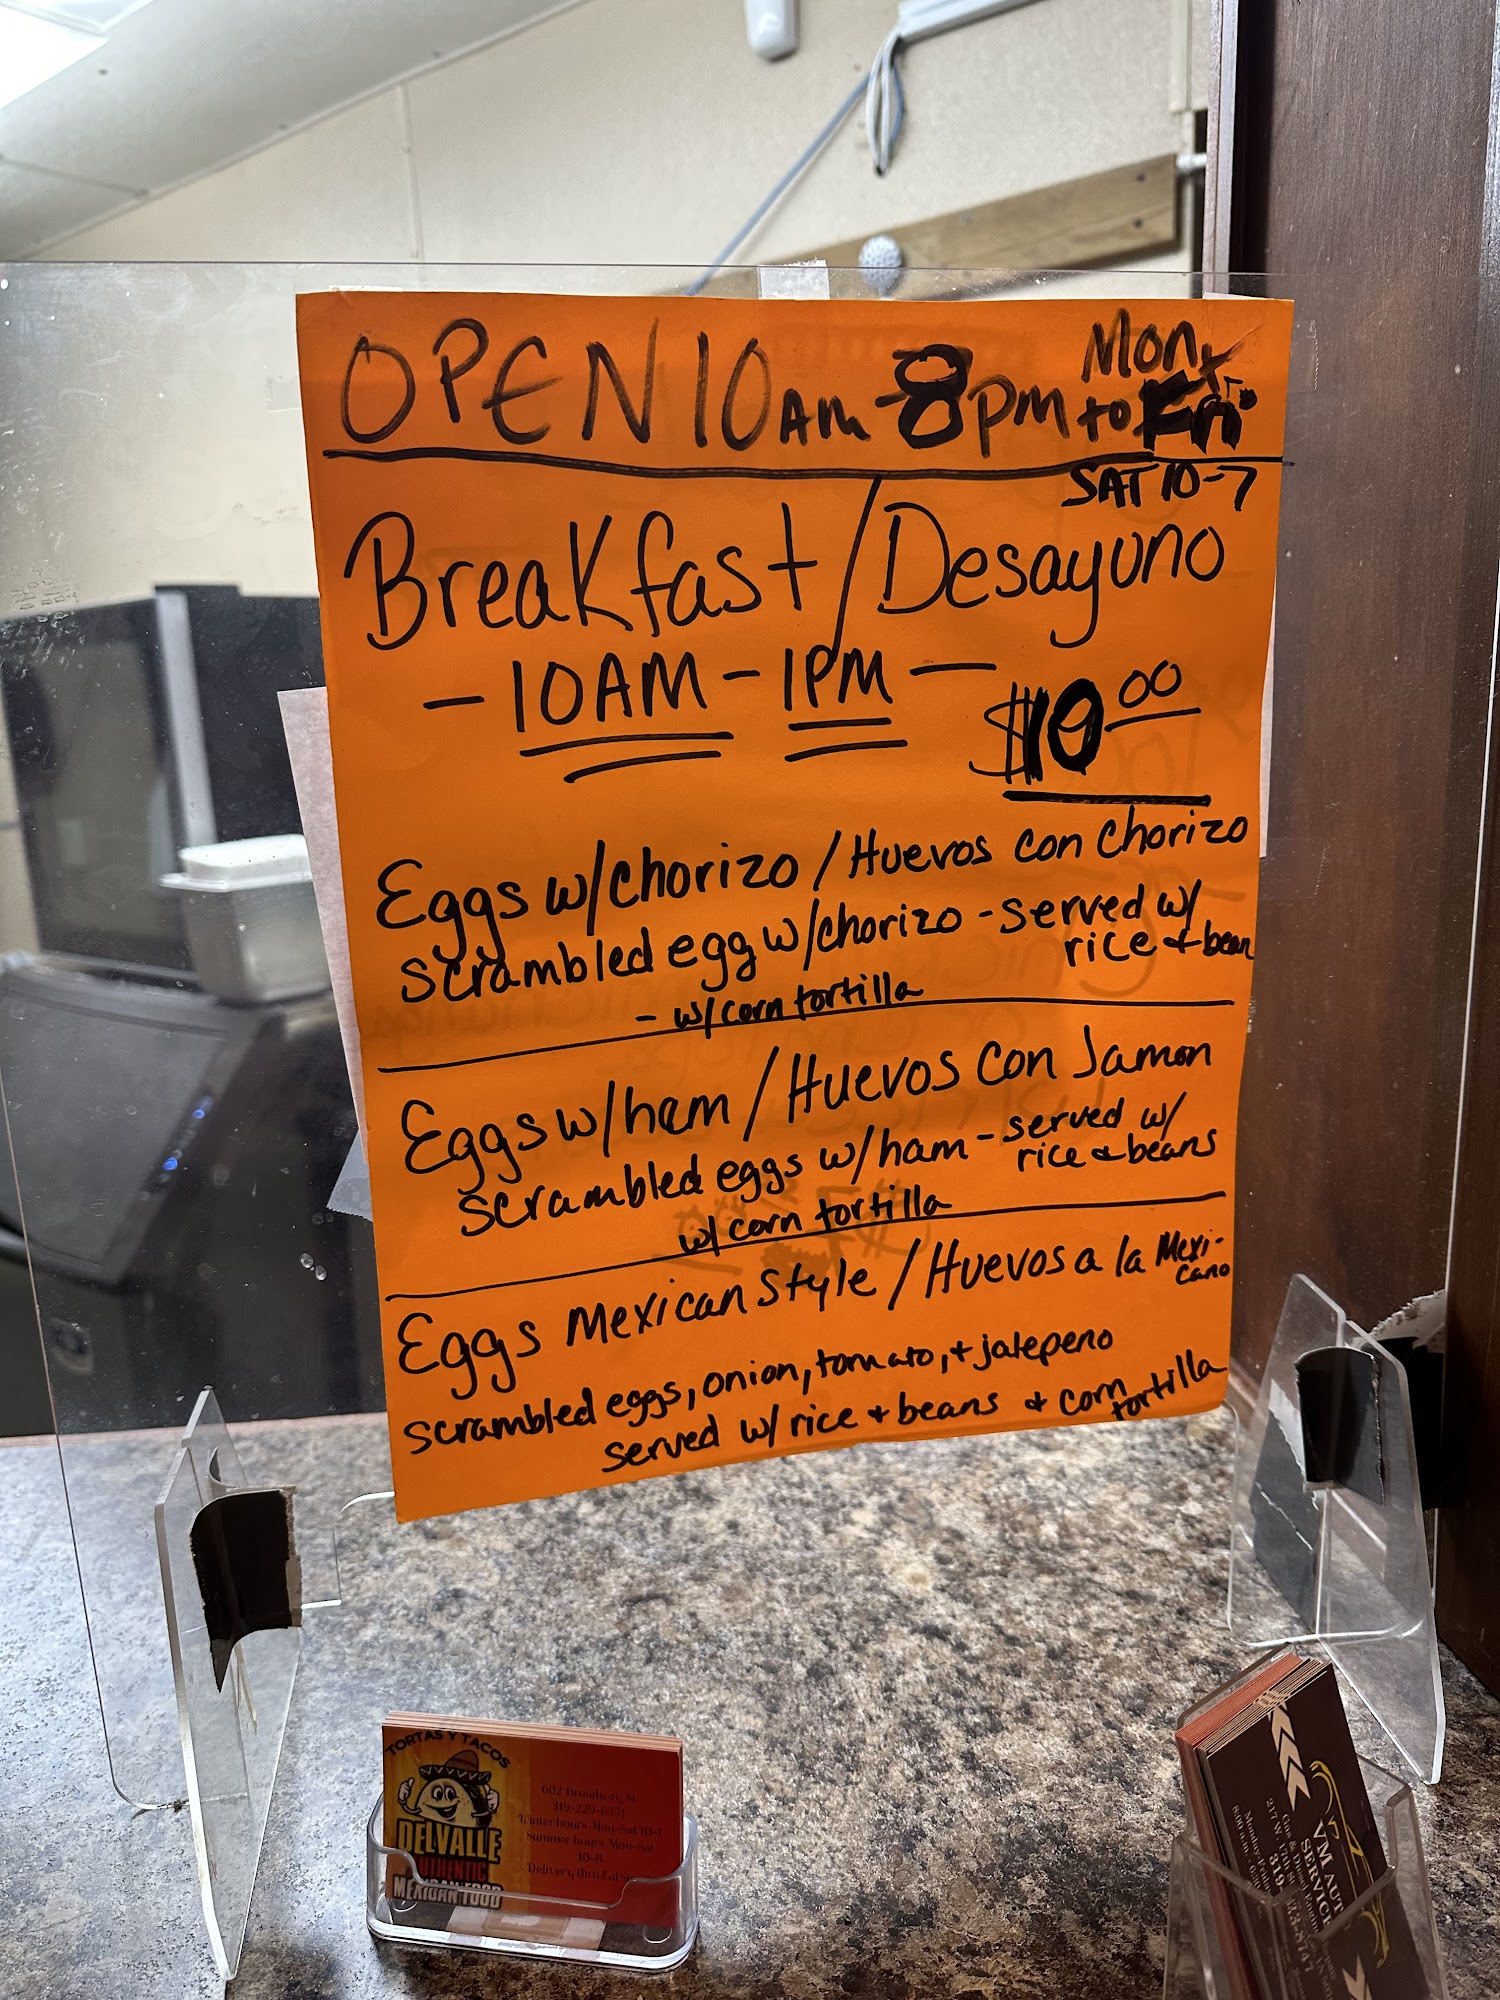 OPEN 10AM-8PM Mon,
to Fri
SAT 10-7
Breakfast/Desayuno
- 10AM - 1PM -
$10.00
Eggs w/chorizo / Huevos con chorizo
scrambled egg w/chorizo - served w/
rice & bean
- w/corn tortilla
Eggs w/ham / Huevos con Jamon
scrambled eggs w/ham - served w/
rice & beans
w/ corn tortilla
Eggs Mexican Style / Huevos a la Mexi-
cano
scrambled eggs, onion, tomato, & jalepeno
served w/ rice & beans & corn
tortilla
TORTAS Y TACOS
DELVALLE
AUTHENTIC
MEXICAN FOOD
602 Broadway St.
Winter hours Mon-Sat 10-7
Summer hours Mon-Sat
10-8
Delivery thru
VM AUT
SERVICE
319